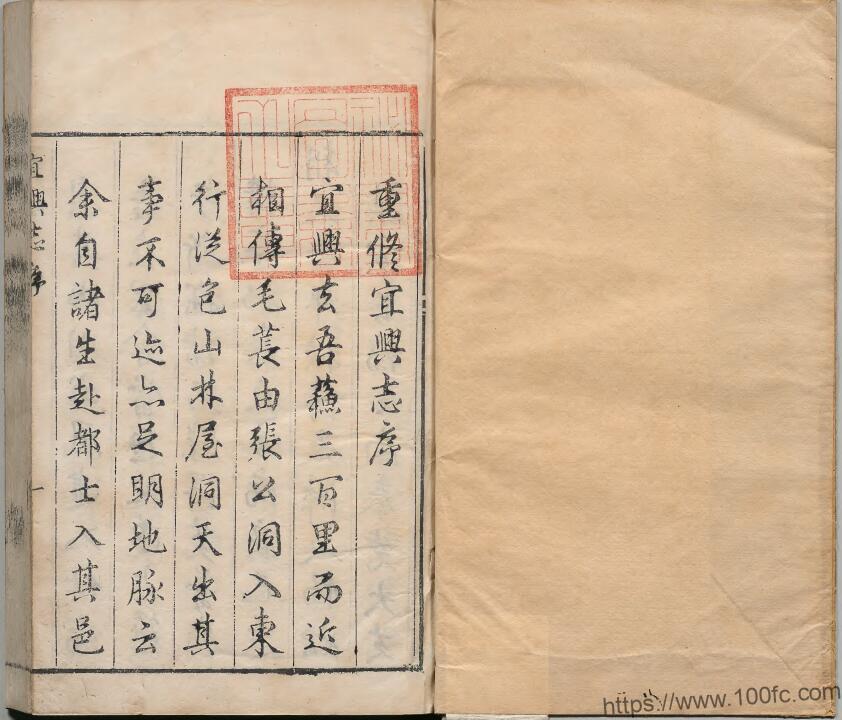 重修宜興志序
宜興去吾蘇三百里而近
相傳毛萇由張公洞入東
行從包山林屋洞天出其
事不可迹亦足明地脉云
余自諸生赴都士入其邑
宜興志序
一
https://www.100fc.com